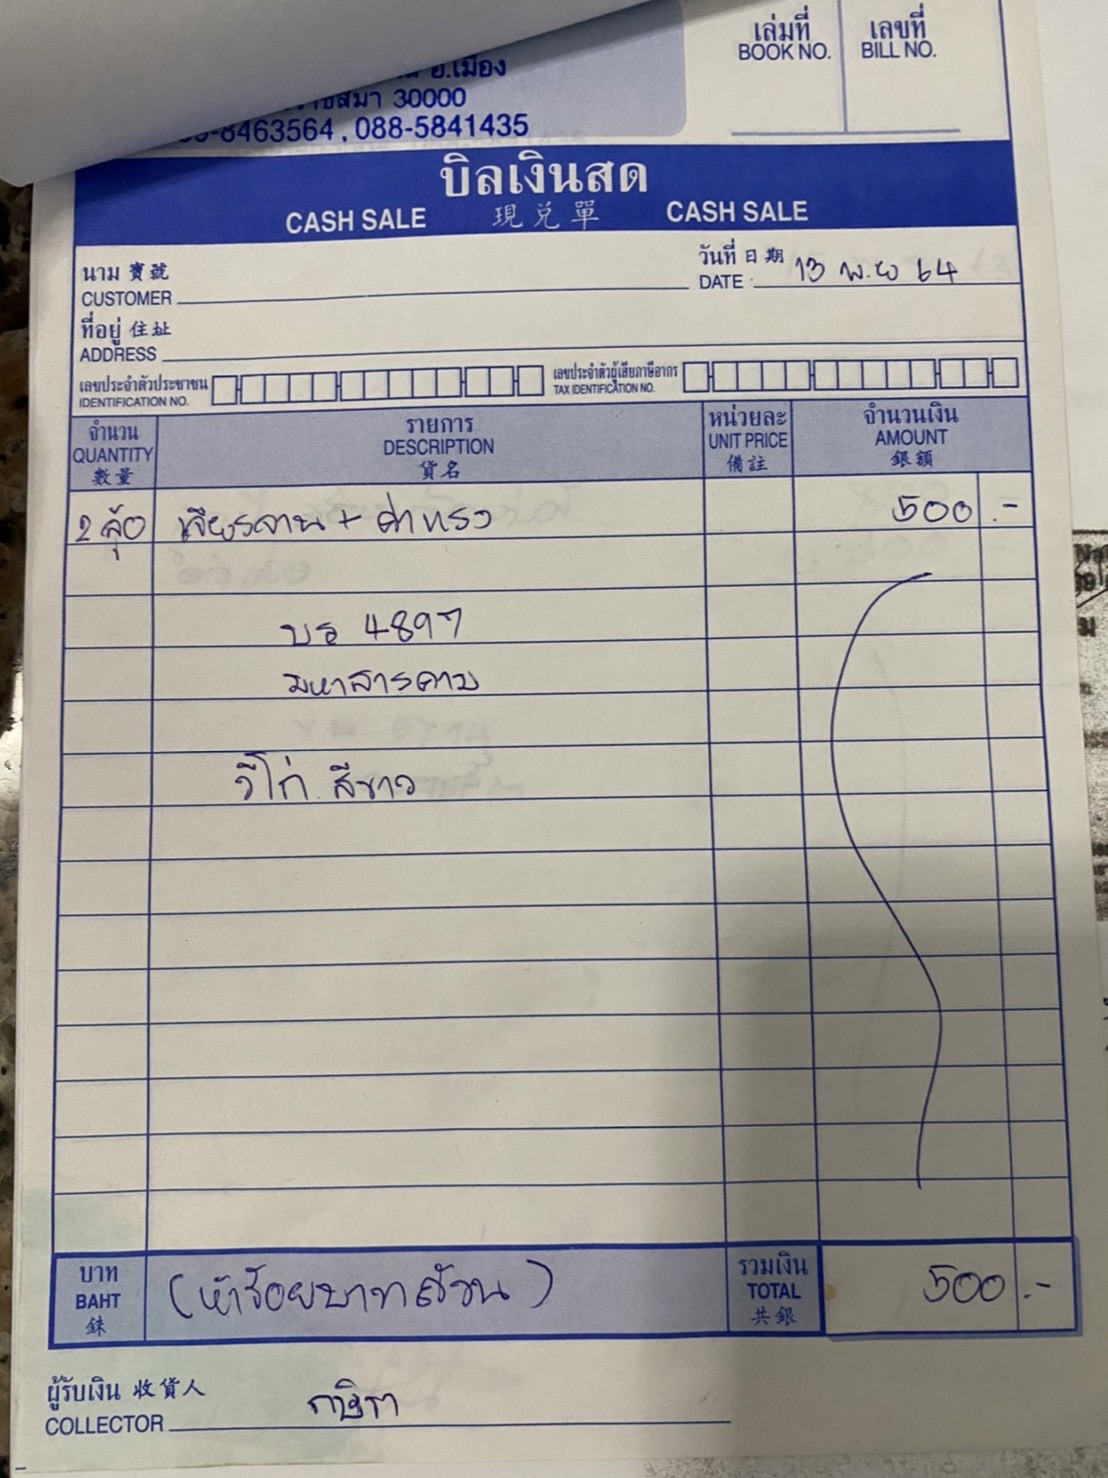 อ.เมือง
30000
8463564 , 088-5841435
เล่มที่ เลขที่
BOOK NO. BILL NO.
บิลเงินสด
CASH SALE 現兌單 CASH SALE
นาม 寶號 วันที่ 日期 13 พ.ย 64
CUSTOMER DATE
ที่อยู่ 住址
ADDRESS
เลขประจำตัวประชาชน เลขประจำตัวผู้เสียภาษีอากร
IDENTIFICATION NO. TAX IDENTIFICATION NO.
จำนวน รายการ หน่วยละ จำนวนเงิน
QUANTITY DESCRIPTION UNIT PRICE AMOUNT
數量 貨名 備註 銀額
2 ลุ้อ เจียรจาน + ค่าแรง 500 .-
บร 4897
มหาสารคาม
วีโก่ สีขาว
บาท (ห้าร้อยบาทถ้วน) รวมเงิน 500 .-
BAHT TOTAL
銖 共銀
ผู้รับเงิน 收貨人
COLLECTOR